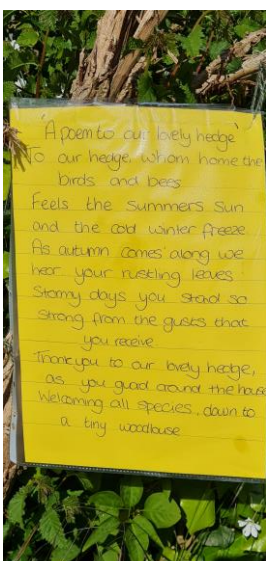 'A poem to our lovely hedge'
To our hedge, whom home the
birds and bees
Feels the summers sun
and the cold winter freeze
As autumn comes along we
hear your rustling leaves
Stormy days you stand so
strong from the gusts that
you receive
Thankyou to our lovely hedge,
as you guard around the house
Welcoming all species, down to
a tiny woodlouse